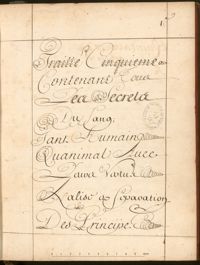 1
Traitté Cinquieme
Contenant Tous
Les Secrets
Du Sang
Tant Humain
Quanimal Avec
Leurs Vertus
Et Separation
Des Principes